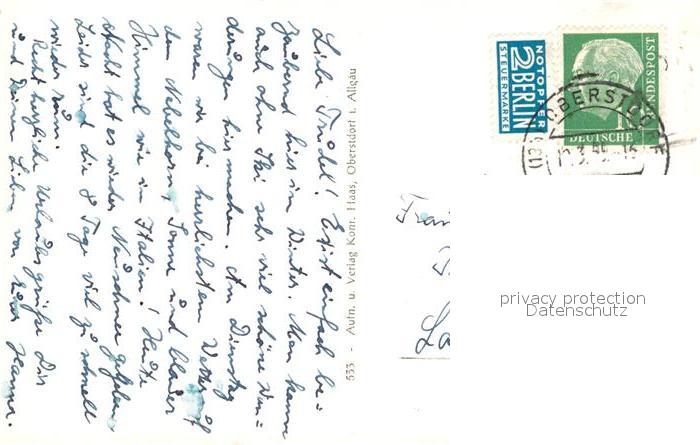 Liebe Trudel! Es ist einfach be=
zaubernd hier im Winter. Man kann
auch ohne Ski sehr viel schöne Wan=
derungen hier machen. Am Dienstag
waren wir bei herrlichstem Wetter auf
dem Nebelhorn, Sonne und blauer
Himmel wie in Italien! Heute
Nacht hat es wieder Neuschnee gegeben.
Leider sind die 8 Tage viel zu schnell
wieder rum.
Recht herzliche Urlaubsgrüße Dir
und Deinen Lieben von Eurer
533 - Aufn. u. Verlag Konr. Haas, Oberstdorf i. Allgäu
NOTOPFER
2 BERLIN
STEUERMARKE
DEUTSCHE
BUNDESPOST
OBERSTDORF
Frau
La
privacy protection
Datenschutz